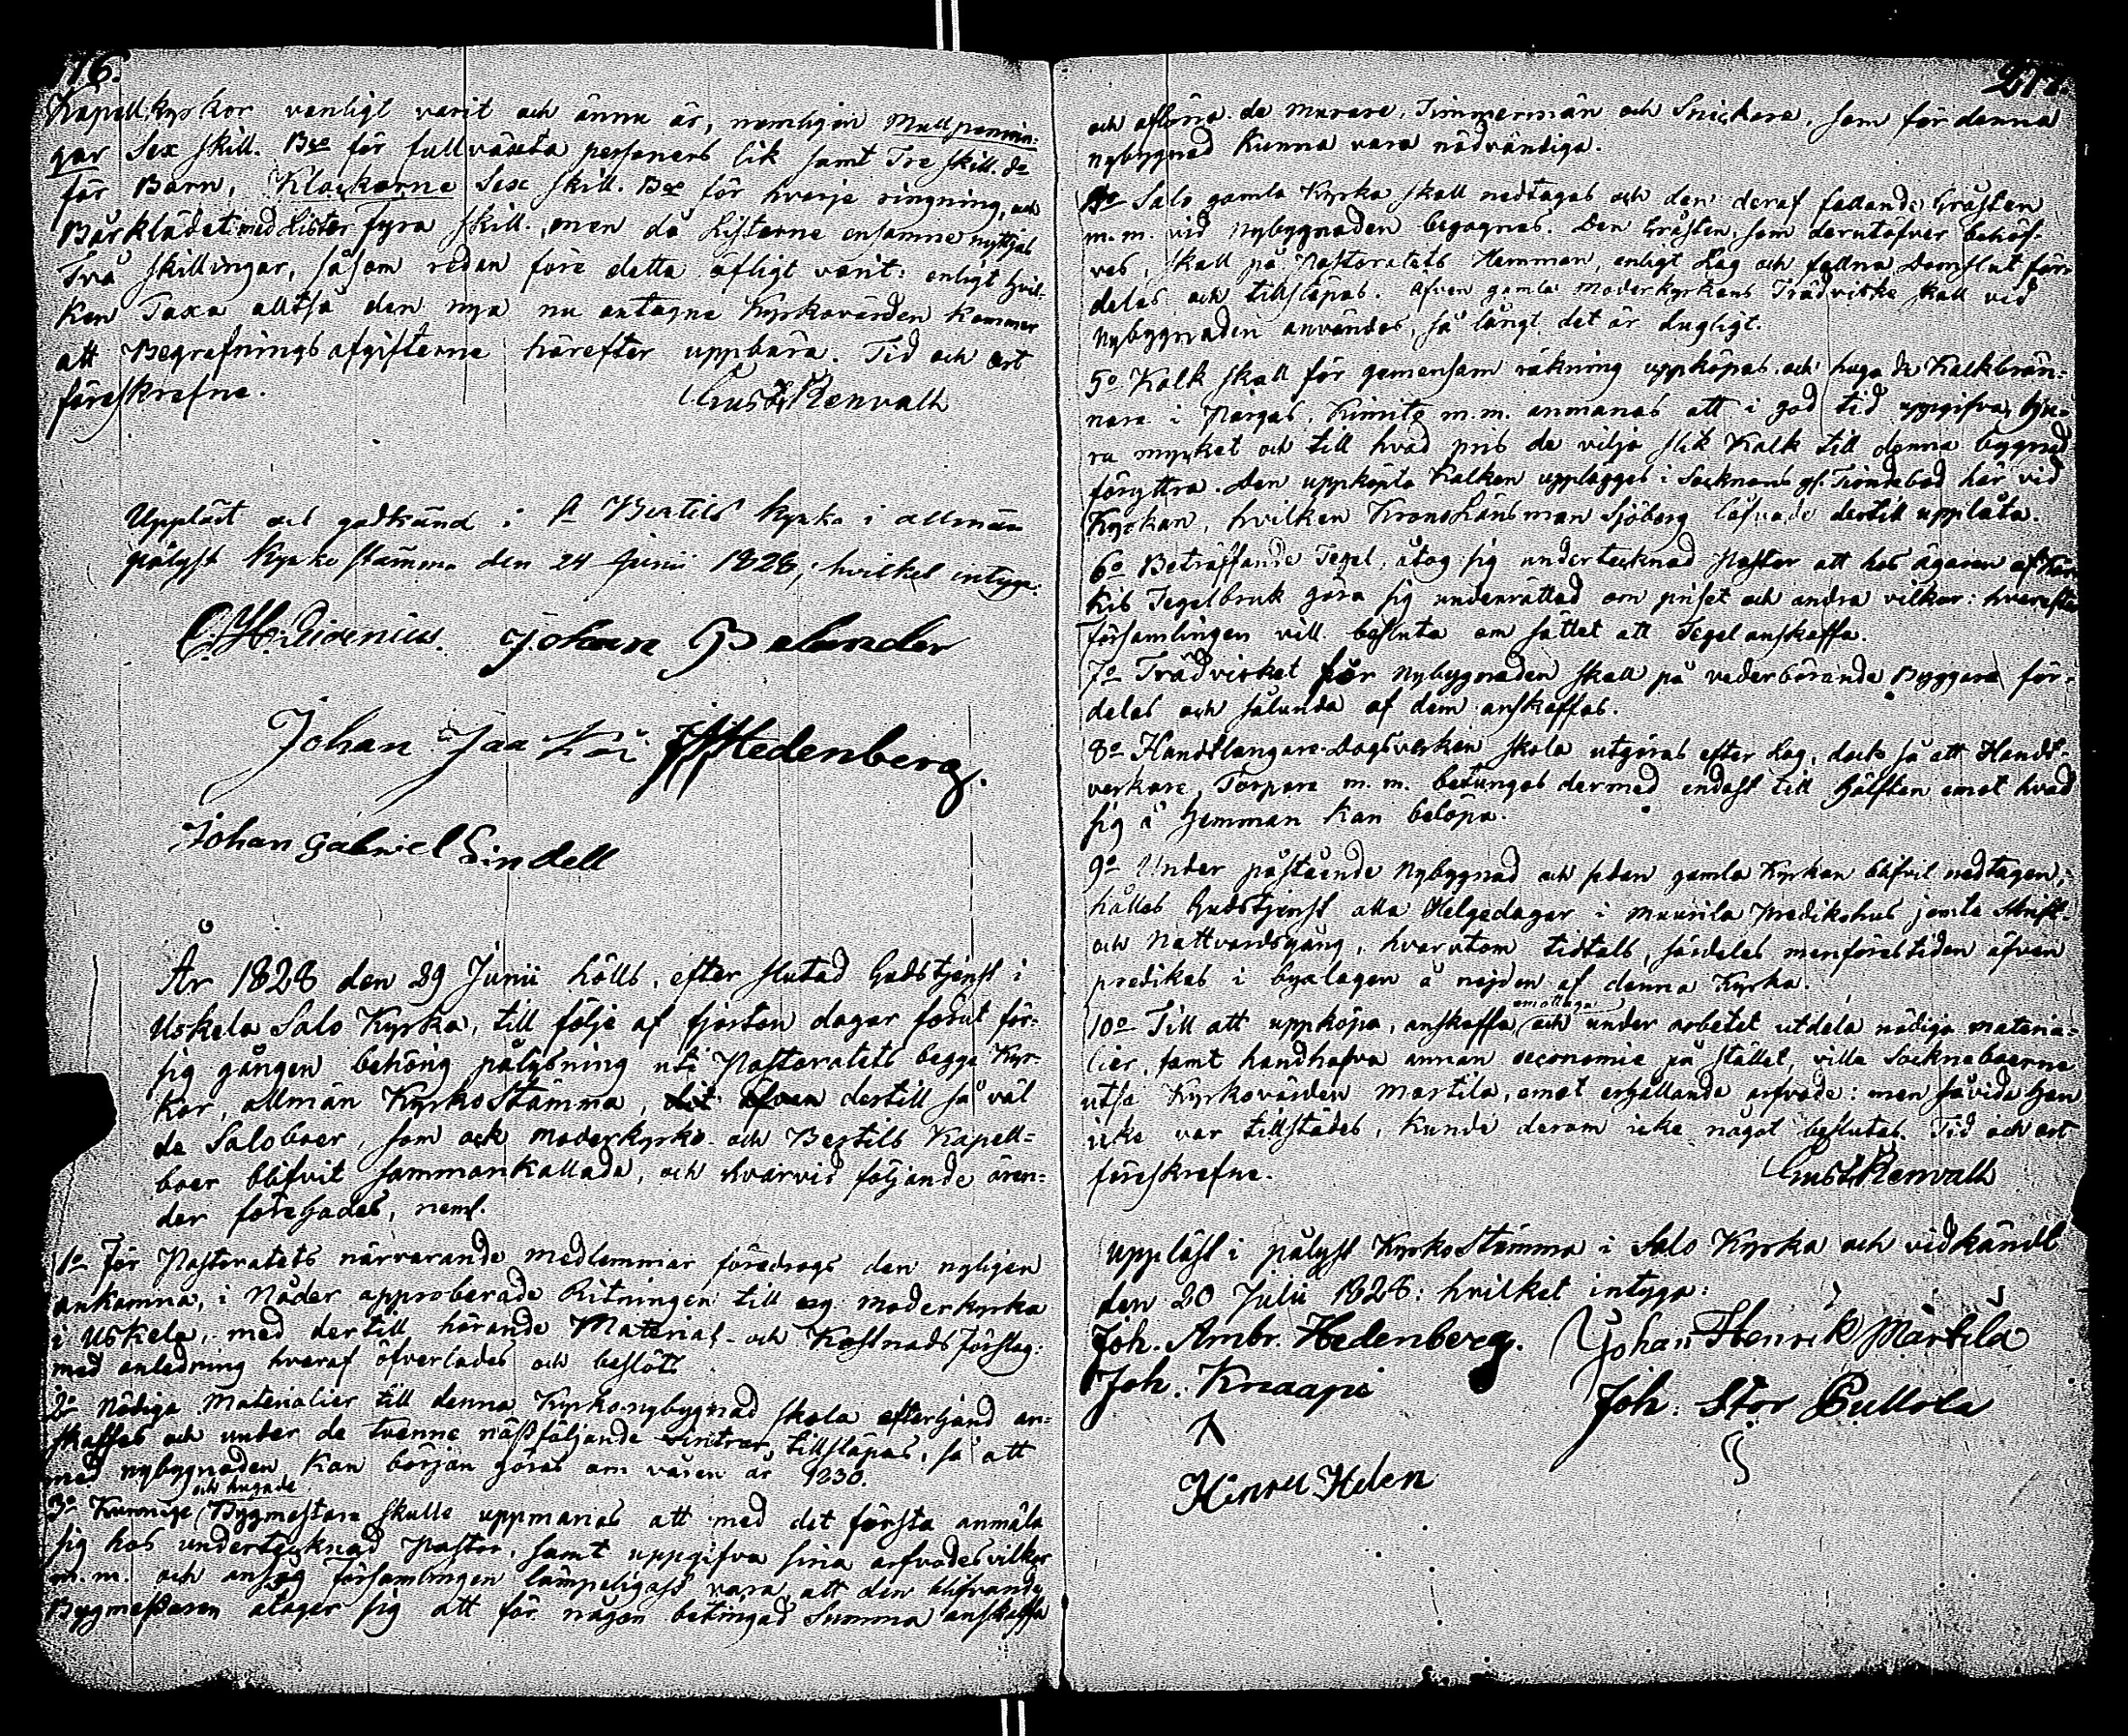 76.
Kapell-kyrkor vanligt varit och ännu är, nemligen Mullpennin-
gar Sex skill. Bco för fullväxta personers lik samt Tre skill. do
för Barn, Klockorne Sex skill. Bco för hvarje ringning, och
Bårklädet med Lister fyra skill., men då Listerne ensamne nyttjas
Två skillingar, såsom redan före detta öfligt varit: enligt hvil-
ken Taxa alltså den nya nu antagne Kyrkovärden kommer
att Begrafningsafgifterne härefter uppbära. Tid och ort
föreskrefne.
Gust. Renvall
Uppläst och godkänd i St Bertils kyrka i allmän
pålyst Kyrkostämma den 24 Junii 1828, hvilket intyga:
C. H. Johan Selander
Johan Jaakkoi JAHedenberg.
Johan Gabriel Lindell
År 1828 den 29 Junii hölls, efter slutad Gudstjenst i
Uskela Salo Kyrka, till följe af fjorton dagar förut för-
sig gången behörig pålysning uti Pastoratets begge Kyr-
kor, allmän KyrkoStämma, dit äfven dertill så väl
de Saloboer, som ock Moderkyrko- och Bertils Kapell-
boer blifvit sammankallade, och hvarvid följande ären-
der förehades, neml.
1o För Pastoratets närvarande medlemmar föredrogs den nyligen
ankomna, i Nåder approberade Ritningen till ny moderkyrka
i Uskela, med dertill hörande Material- och Kostnads förslag:
med anledning hvaraf öfverlades och beslöts
2o Nödige Materialier till denna Kyrkonybygnad skola efterhand an-
skaffas och under de tvenne nästföljande vintrar, tillsläpas, så att
med nybygnaden kan början göras om våren år 1830.
och hugade
3o Kunnige Bygmästare skulle uppmanas att med det första anmäla
sig hos undertecknad Pastor, samt uppgifva sina arfvodesvilkor
m.m. och ansåg församlingen lämpeligast vara att den blifvande
Bygmästaren åtager sig att för någon betingad Summa anskaffa
217.
och aflöna de murare, Timmermän och Snickare, som för denna
nybygnad kunna vara nödvändiga.
4o Salo gamla Kyrka skall nedtagas och den deraf fallande Gråsten
m.m. vid nybygnaden begagnas. Den Gråsten, som derutöfver behöf-
ves, skall på Pastoratets Hemman, enligt Lag och fallna Domslut för-
delas och tillsläpas. Äfven gamla moderkyrkans Trädvirke skall vid
nybygnaden användas, så långt det är dugligt.
5o Kalk skall för gemensam räkning uppköpas och hugade Kalkbrän-
nare i Pargas, Kimito m.m. anmanas att i god tid uppgifva, hu-
ru mycket och till hvad pris de vilja slik Kalk till denna bygnad
föryttra. Den uppköpta Kalken upplägges i Socknens gl. Tiondebod här vid
Kyrkan, hvilken KronoLänsman Sjöberg lofvade dertill upplåta.
6o Beträffande Tegel, åtog sig undertecknad Pastor att hos ägaren af
kis Tegelbruk göra sig underrättad om priset och andra vilkor: hvarefter
församlingen vill besluta om sättet att Tegel anskaffa.
7o Trädvirket för nybygnaden skall på vederbörande Byggare för-
delas och sålunda af dem anskaffas.
8o Handtlangare-Dagsverken skola utgöras efter Lag, dock så att Handt-
verkare, Torpare m.m. betungas dermed endast till hälften emot hvad
sig å Hemman kan belöpa.
9o Under påstående Nybygnad och sedan gamla Kyrkan blifvit nedtagen,
hålles Gudstjenst alla Helgedagar i Muurila Predikohus jemte Skrift-
och Nattvardsgång, hvarutom tidtals, särdeles menförestiden äfven
predikas i byalagen å nejden af denna Kyrka.
emottaga
10o Till att uppköpa, anskaffa och under arbetet utdela nödiga materia-
lier, samt handhafva annan oeconomie på stället, ville Socknaboerne
utse Kyrkovärden Martila, emot erhållande arfvode: men såvida han
icke var tillstädes, kunde derom icke något beslutas. Tid och ort
föreskrefne.
Gust. Renvall
Uppläst i pålyst KyrkoStämma i Salo Kyrka och vidkändt
den 20 Julii 1828: hvilket intyga:
Joh. Ambr. Hedenberg. Johan Henrik Märtila
Joh. Knaapi Joh. Stor Pullola
Hinrik Helen